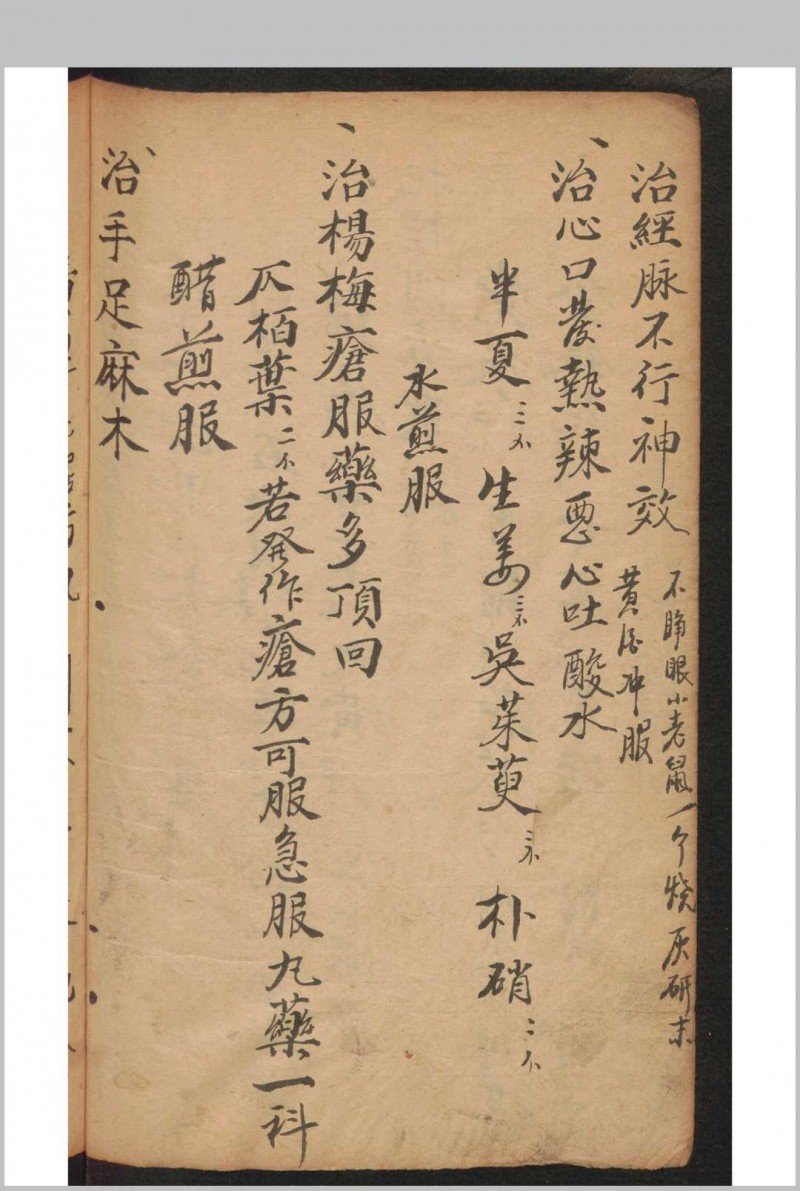 治經脉不行神效
不睁眼小老鼠一个烧灰研末
黄酒冲服
治心口發熱辣惡心吐酸水
半夏三 生姜三 吳茱萸三 朴硝二
水煎服
治楊梅瘡服藥多頂回
仄栢葉二 若發作瘡方可服急服九藥一科
醋煎服
治手足麻木